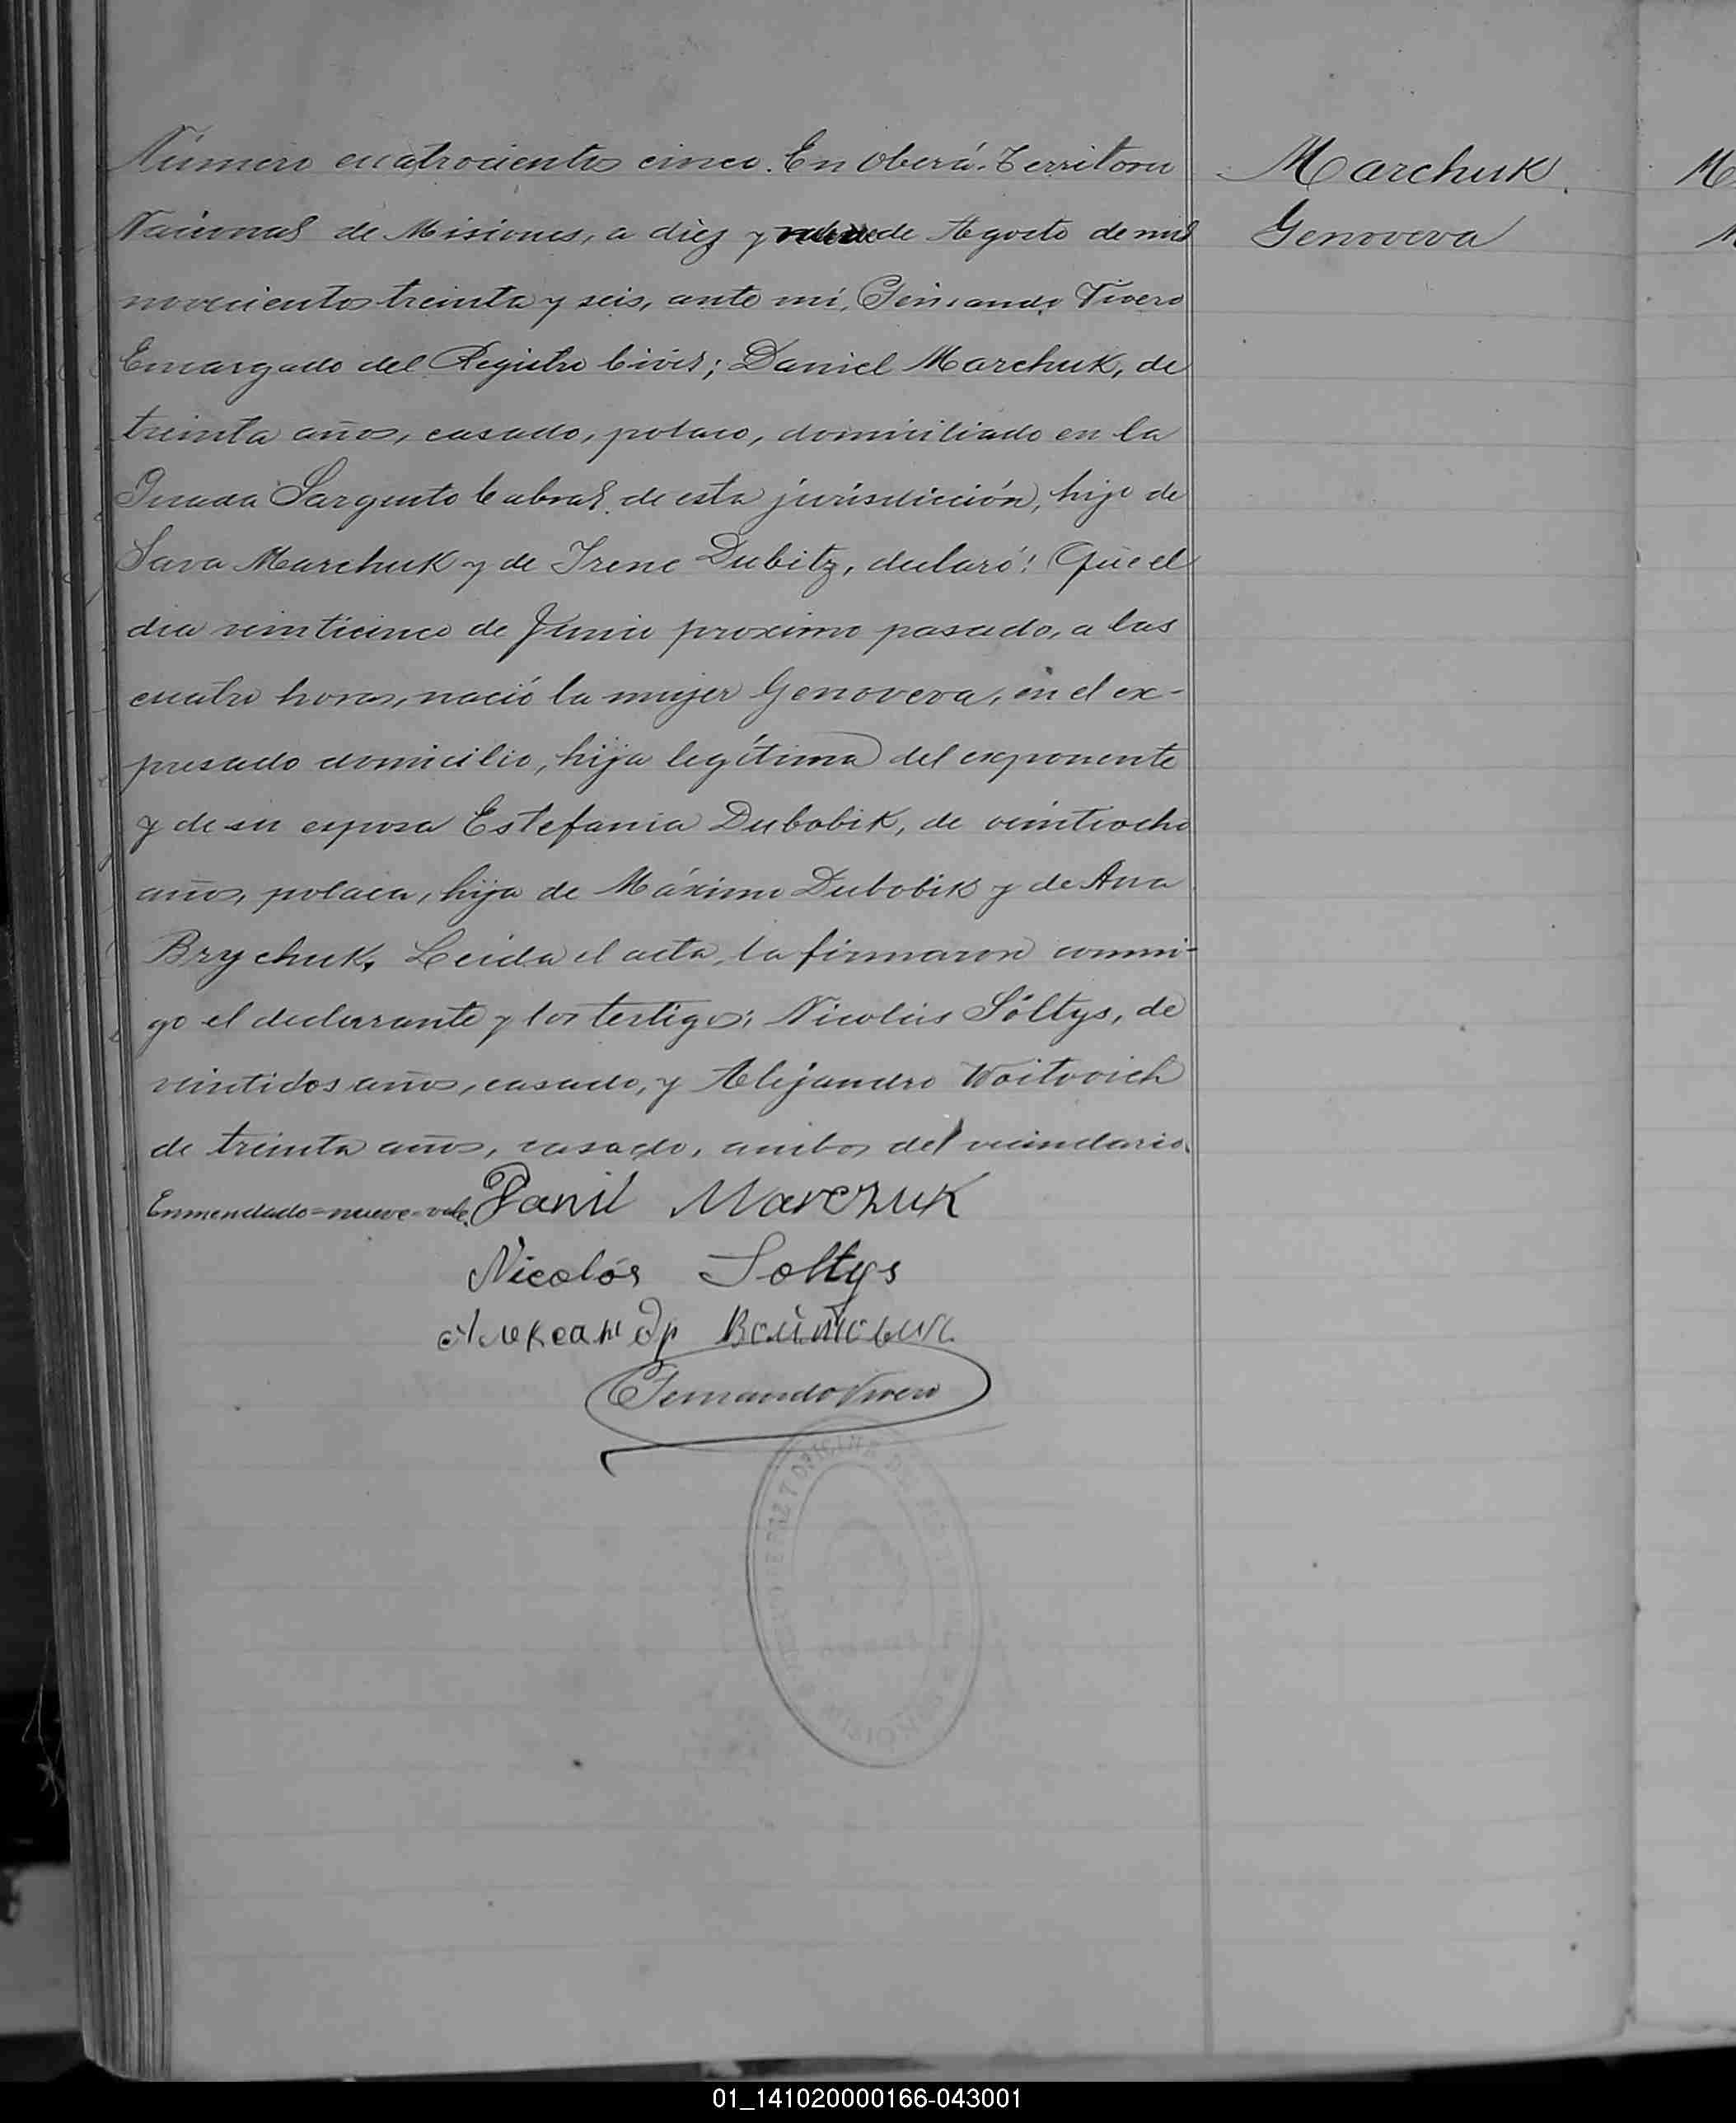 Número cuatrocientos cinco. En Oberá. Territorio
Nacional de Misiones, a diez y nueve de Agosto de mil
novecientos treinta y seis, ante mi, Fernando Vivero
Encargado del Registro Civil; Daniel Marchuk, de
treinta años, casado, polaco, domiciliado en la
Picada Sargento Cabral de esta jurisdicción, hijo de
Sava Marchuk y de Irene Dubitz, declaró: Que el
dia veinticinco de Junio proximo pasado, a las
cuatro horas, nació la mujer Genoveva, en el ex-
presado domicilio, hija legítima del exponente
y de su esposa Estefania Dubobik, de veintiocho
años, polaca, hija de Máximo Dubobik y de Ana
Brychuk. Leida el acta, la firmaron conmi-
go el declarante y los testigos: Nicolás Sóltys, de
veintidos años, casado, y Alejandro Woitovich
de treinta años, casado, ambos del vecindario.
Enmendado=nueve=vale.
Danil Marczuk
Nicolás Soltys
Александр Войтович
Fernando Vivero
Marchuk
Genoveva
01_141020000166-043001